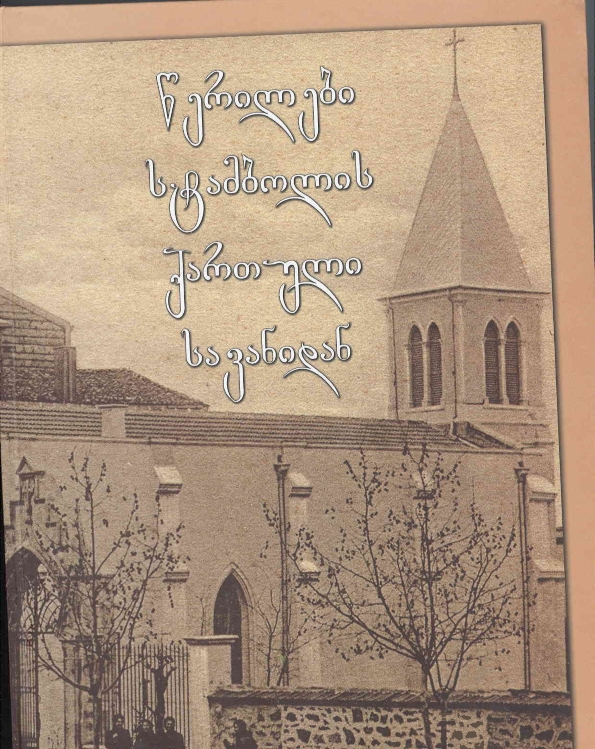 წერილები
სტამბოლის
ქართული
სავანიდან